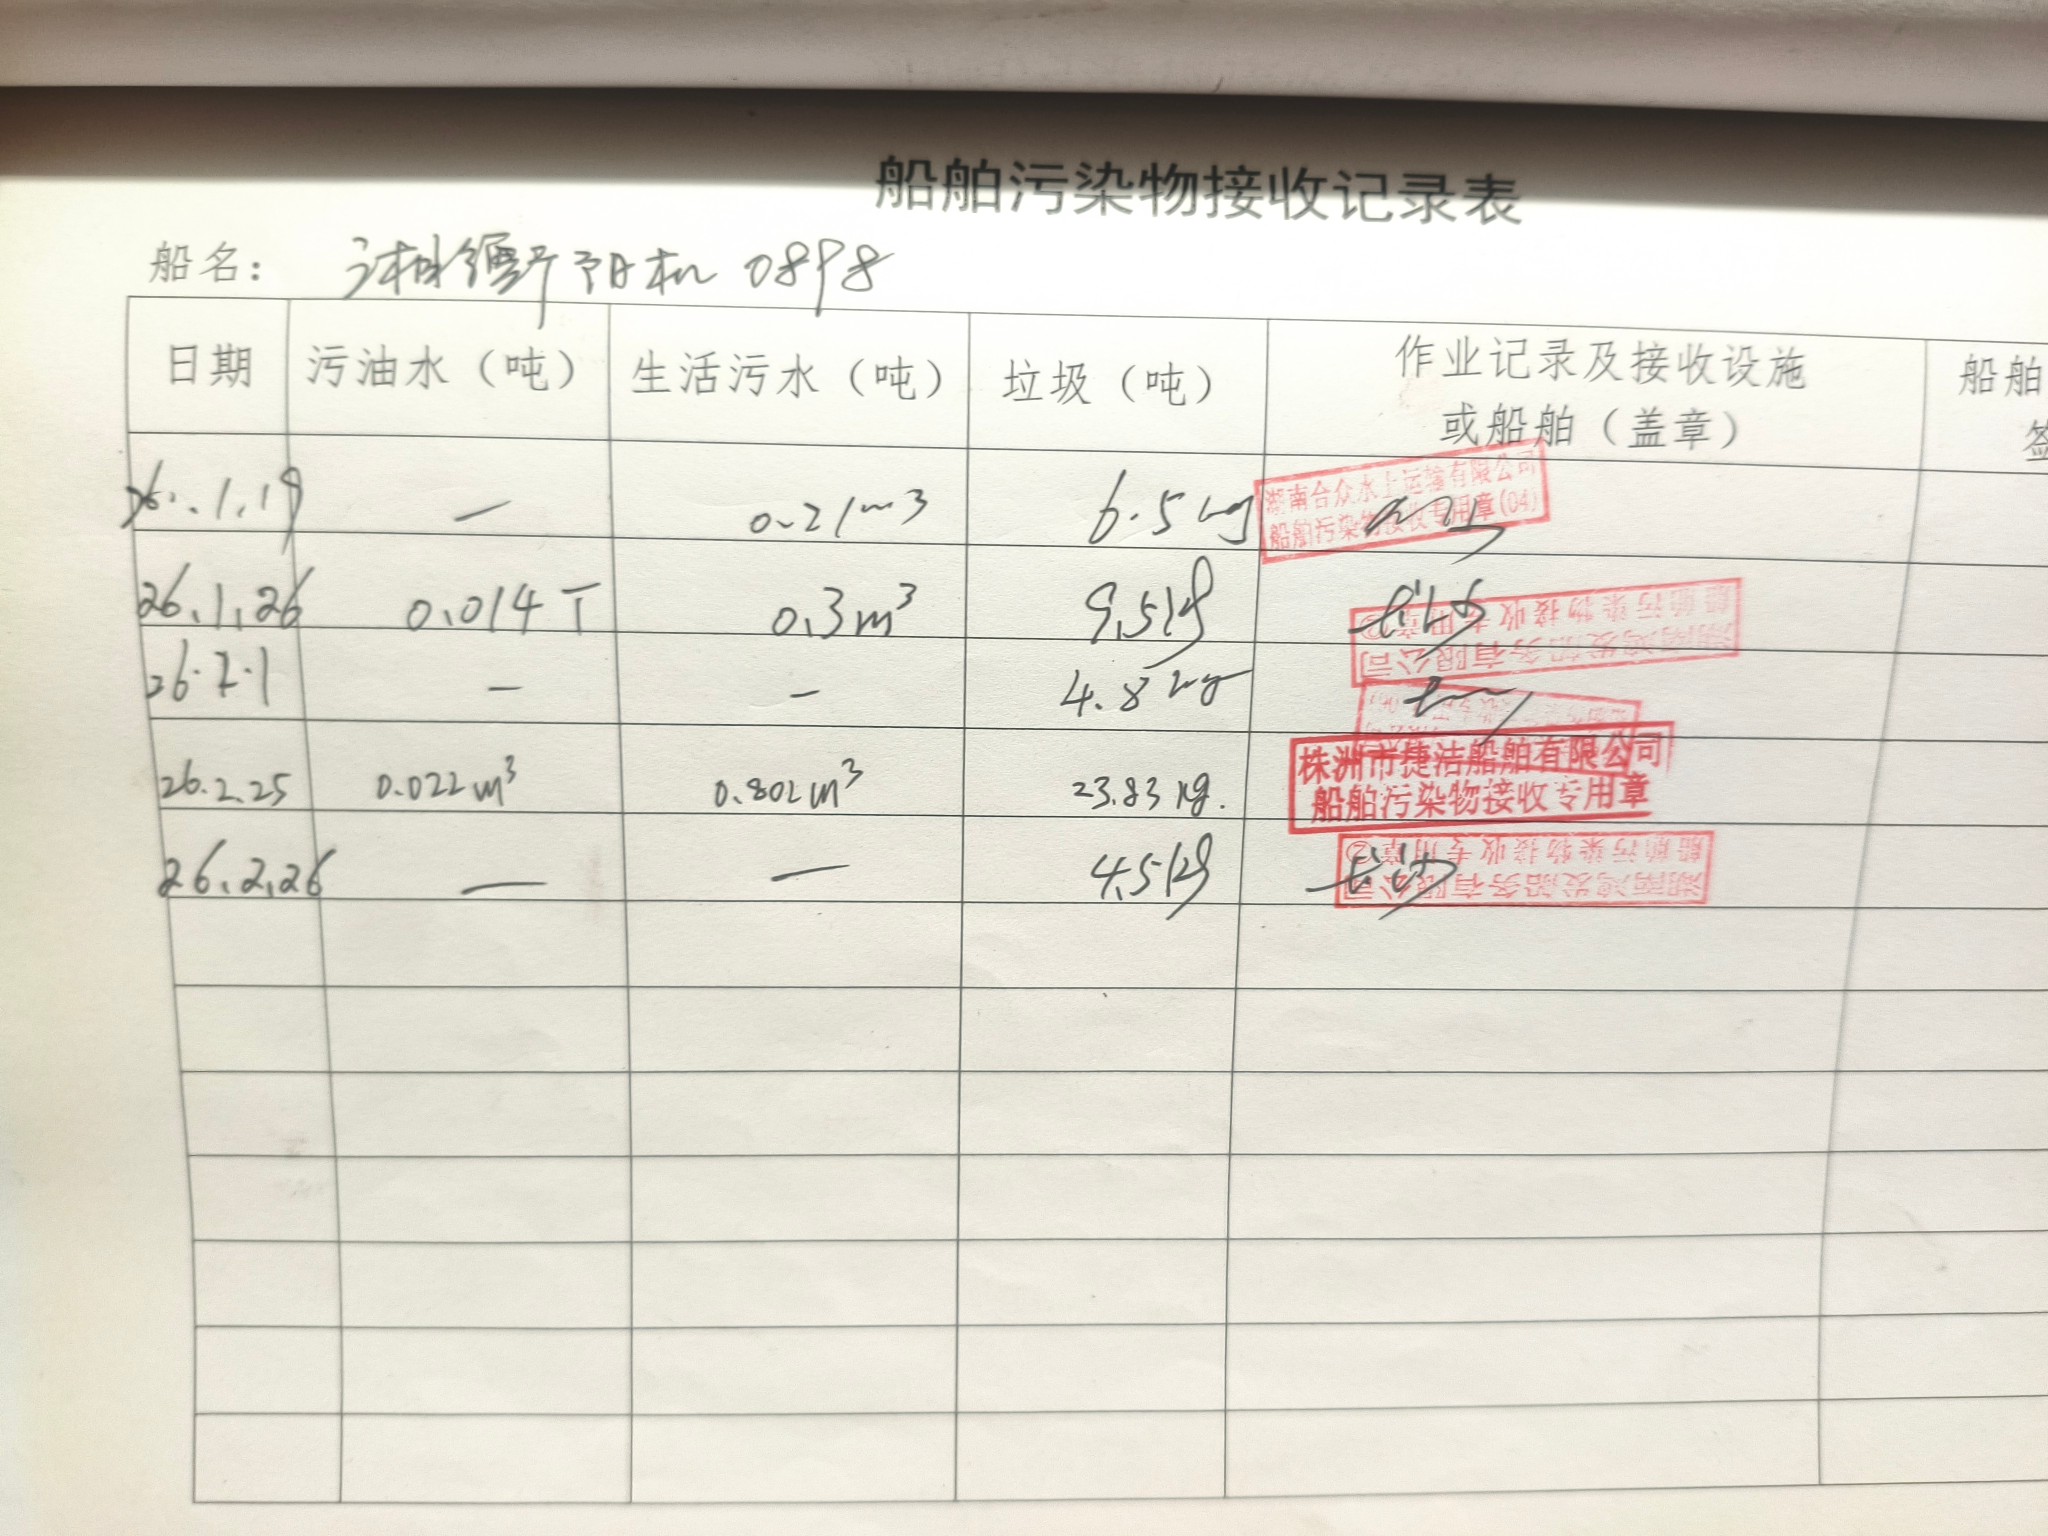 船舶污染物接收记录表
船名： 0898
日期 污油水（吨） 生活污水（吨） 垃圾（吨） 作业记录及接收设施 船舶
或船舶（盖章） 签
26.1.19 — 0.21m3 6.5kg
湖南合众水上运输有限公司
船舶污染物接收专用章(04)
26.1.26 0.014T 0.3m³ 9.5kg 长沙
船舶污染物接收专用章②
湖南鸿发船务有限公司
26.2.1 — — 4.8kg
26.2.25 0.022m³ 0.802m³ 23.83kg.
株洲市捷洁船舶有限公司
船舶污染物接收专用章
26.2.26 — — 4.5kg 长沙
船舶污染物接收专用章②
湖南鸿发船务有限公司